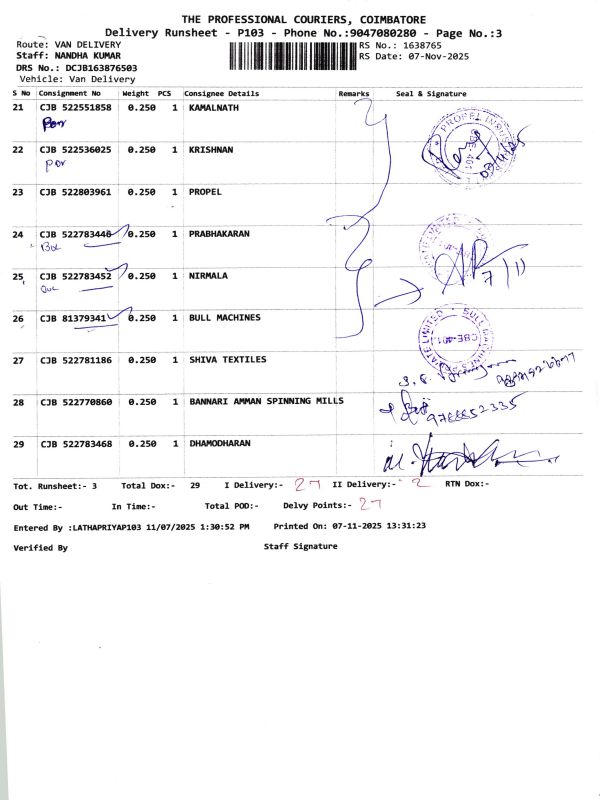 THE PROFESSIONAL COURIERS, COIMBATORE
Delivery Runsheet - P103 - Phone No.:9047080280 - Page No.:3
Route: VAN DELIVERY
RS No.: 1638765
Staff: NANDHA KUMAR
RS Date: 07-Nov-2025
DRS No.: DCJB163876503
Vehicle: Van Delivery
S No Consignment No Weight PCS Consignee Details Remarks Seal & Signature
21 CJB 522551858 0.250 1 KAMALNATH
22 CJB 522536025 0.250 1 KRISHNAN
23 CJB 522803961 0.250 1 PROPEL
24 CJB 522783446 0.250 1 PRABHAKARAN
25 CJB 522783452 0.250 1 NIRMALA
7/11
26 CJB 81379341 0.250 1 BULL MACHINES
CBE-401
27 CJB 522781186 0.250 1 SHIVA TEXTILES
28 CJB 522770860 0.250 1 BANNARI AMMAN SPINNING MILLS
29 CJB 522783468 0.250 1 DHAMODHARAN
Tot. Runsheet:- 3 Total Dox:- 29 I Delivery:- 27 II Delivery:- 2 RTN Dox:-
Out Time:- In Time:- Total POD:- Delvy Points:- 27
Entered By :LATHAPRIYAP103 11/07/2025 1:30:52 PM Printed On: 07-11-2025 13:31:23
Verified By Staff Signature